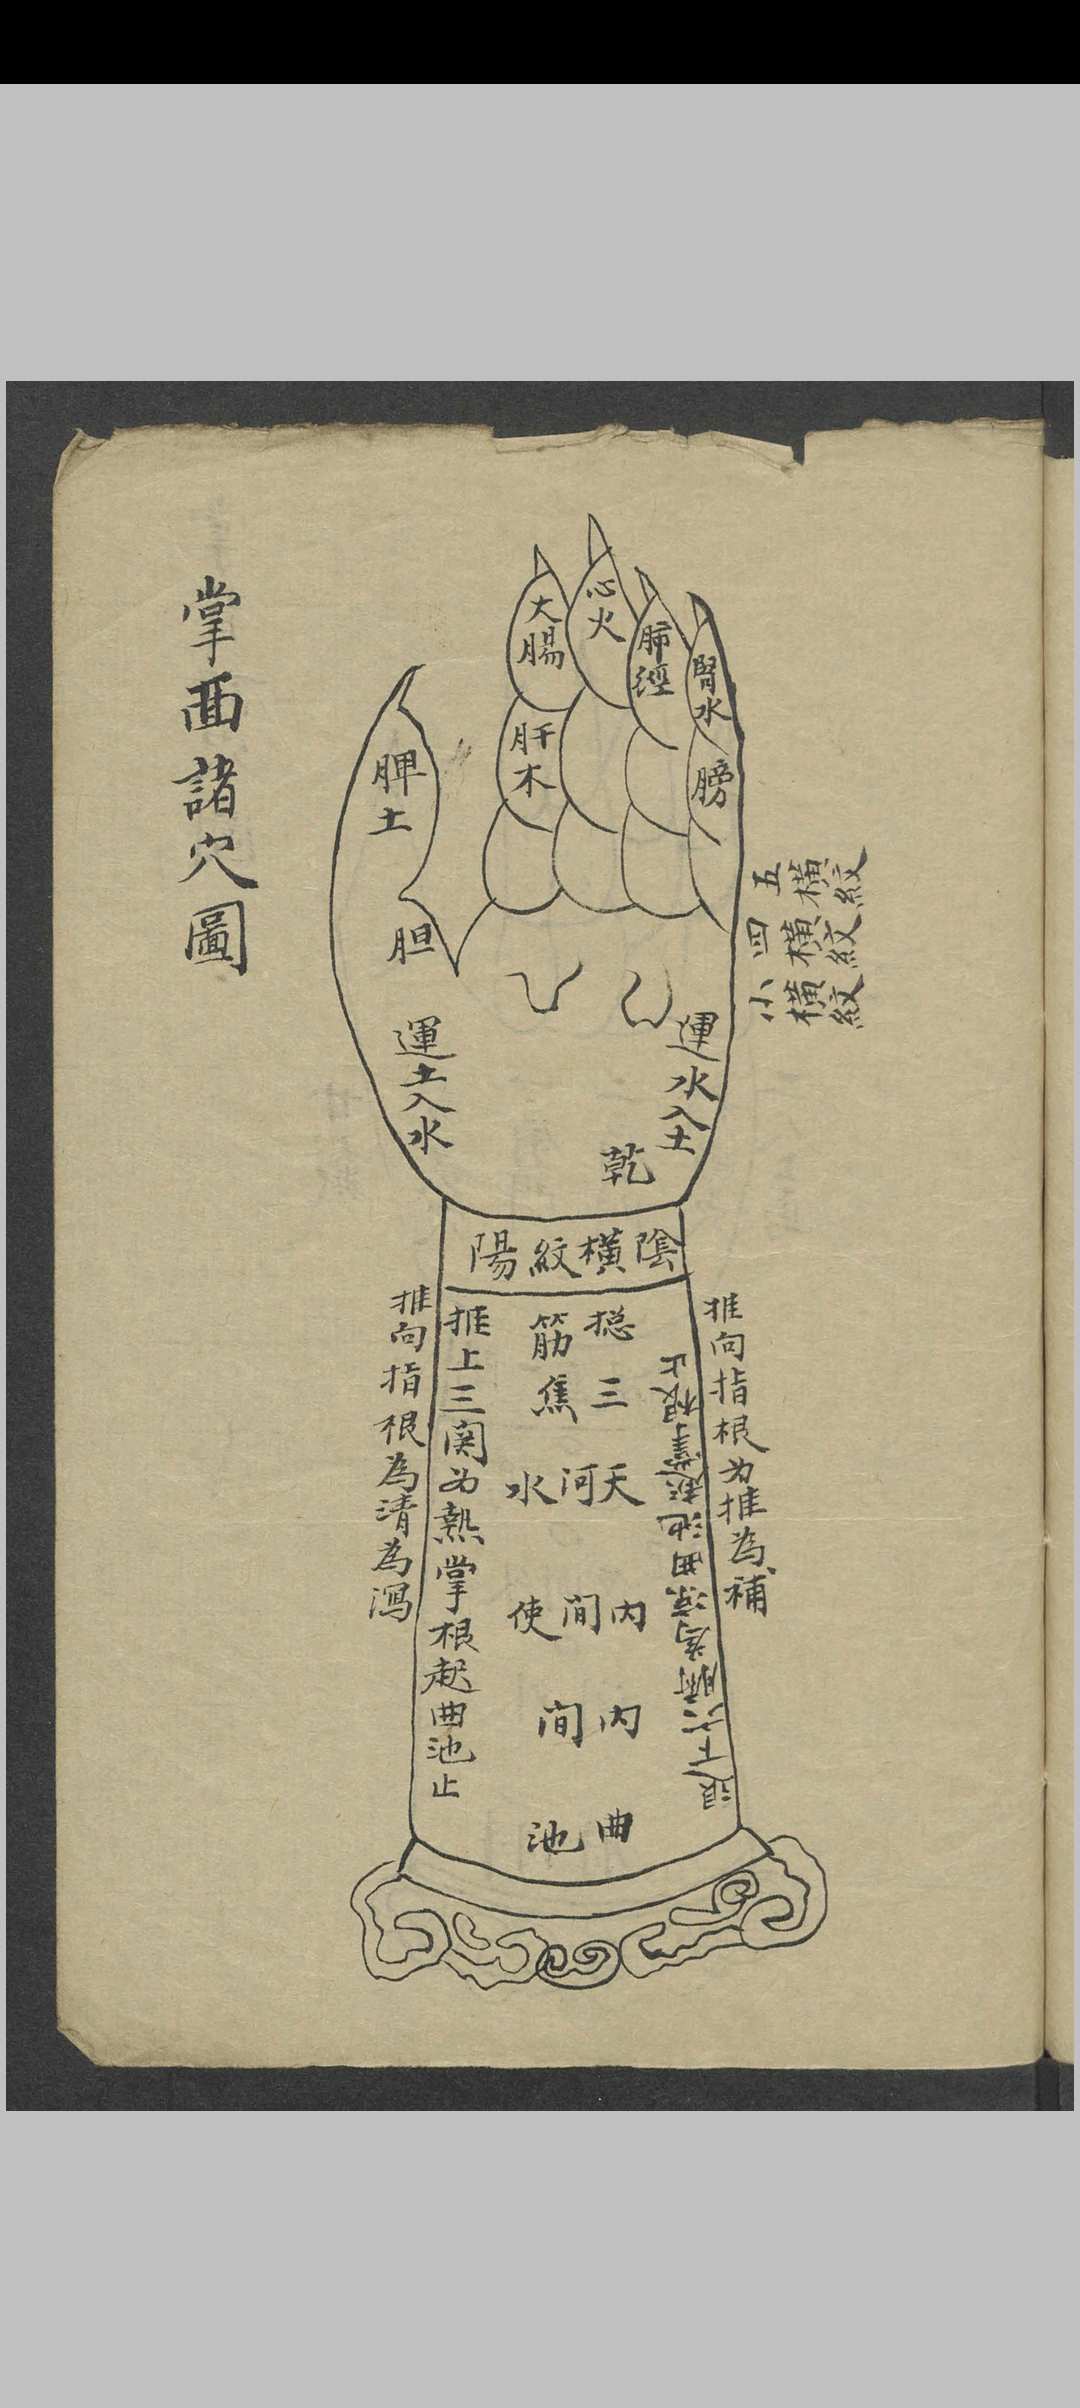 掌面諸穴圖
大腸
心火
肺經
腎水
肝木
膀
脾土
胆
五橫紋
四橫紋
小橫紋
運土入水
運水入土
乾
陰橫紋陽
推向指根為清為瀉
推上三関为熱掌根起曲池止
總筋
三焦
天河水
內間使
內間
曲池
退下六腑為涼曲池起掌根止
推向指根为推為補